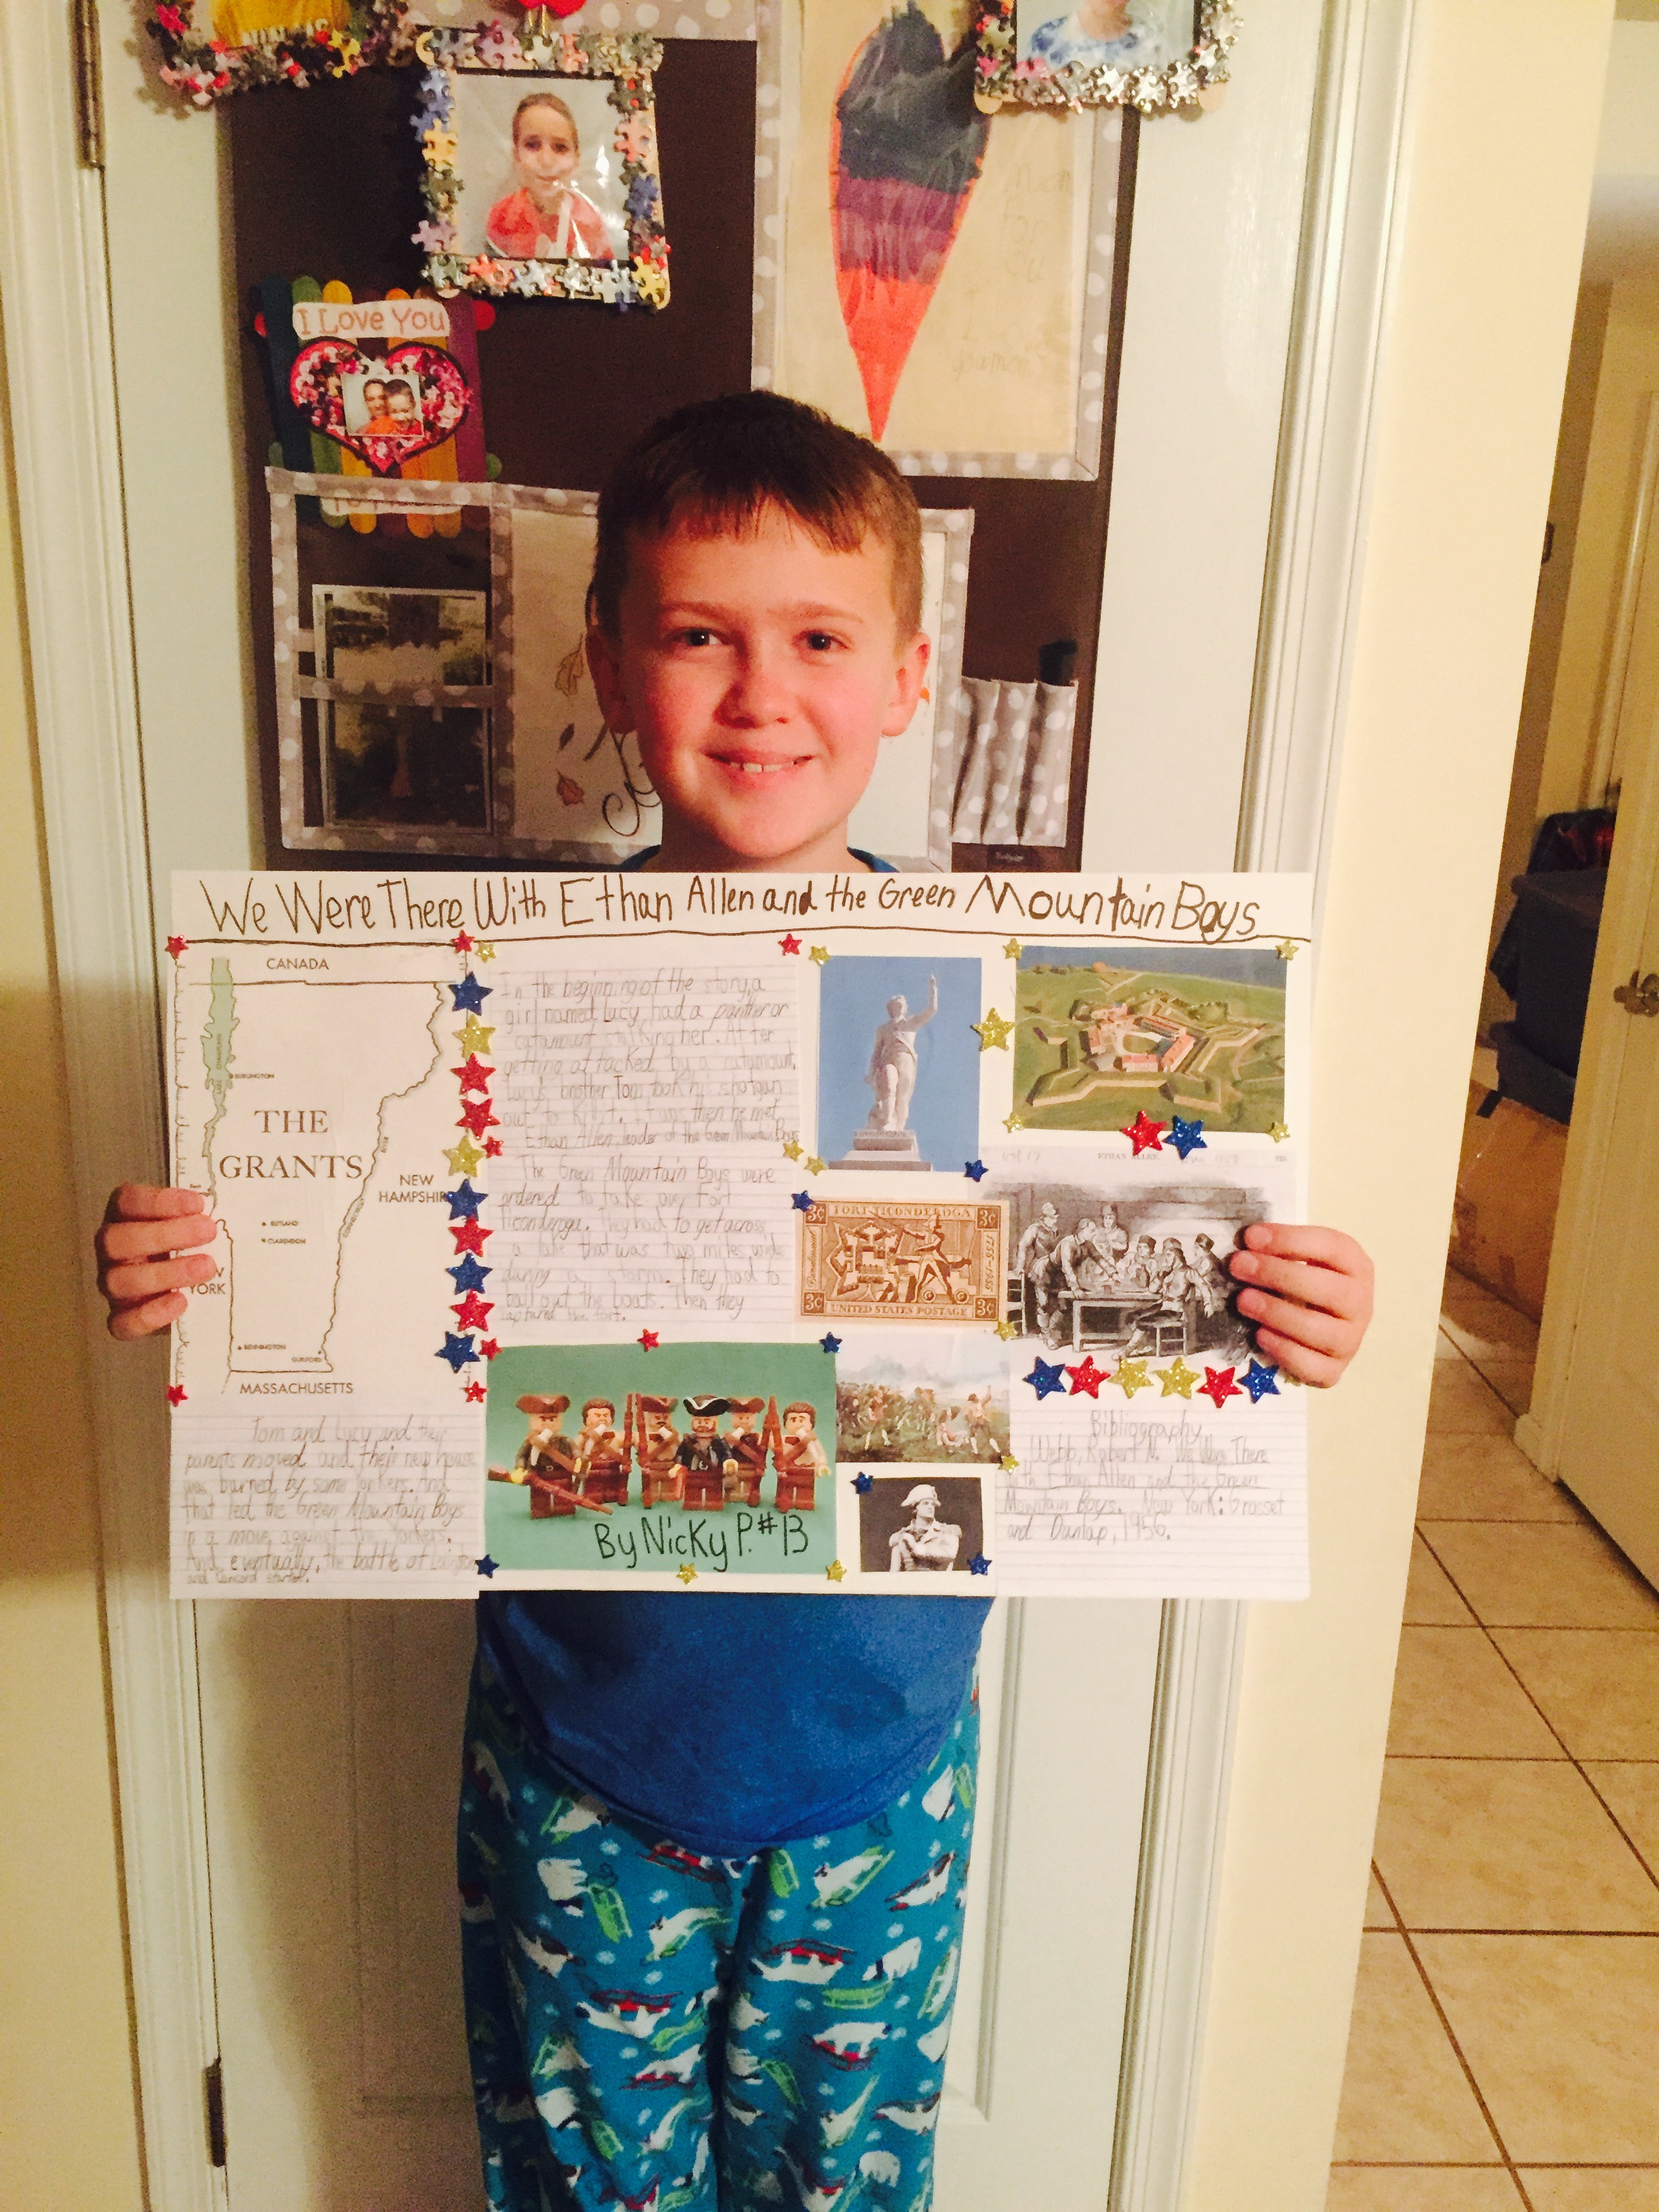 I Love You
We Were There With Ethan Allen and the Green Mountain Boys
CANADA
BURLINGTON
THE
GRANTS
NEW
HAMPSHIRE
RUTLAND
CLARENDON
YORK
BENNINGTON
GUILFORD
MASSACHUSETTS
Tom and Lucy and their
parents moved and their new house
was burned by some yorkers. And
that led the Green Mountain Boys
in a move against the Yorkers.
And, eventually, the battle of Lexington
and Concord started.
In the beginning of the story, a
girl named Lucy had a panther or
catamount stalking her. After
getting attacked by a catamount,
Lucy's brother Tom took his shotgun
out to kill it. It was then he met
Ethan Allen, leader of the Green Mountain Boys
The Green Mountain Boys were
ordered to take over Fort
Ticonderoga. They had to get across
a lake that was two miles wide
during a storm. They had to
bail out the boats. Then they
captured the fort.
3¢ FORT TICONDEROGA 3¢
1755-1955
3¢ UNITED STATES POSTAGE 3¢
ETHAN ALLEN.
By Nicky P. #13
Bibliography
Webb, Robert N. We Were There
With Ethan Allen and the Green
Mountain Boys. New York: Grosset
and Dunlap, 1956.